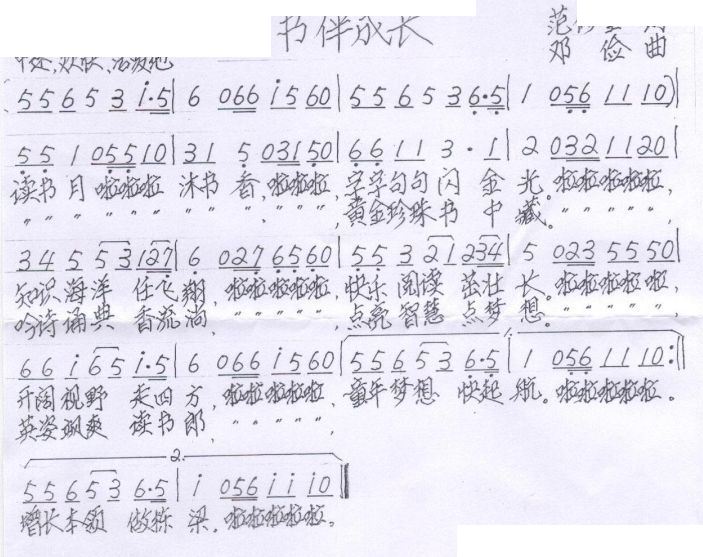 书伴成长
邓俭曲
中速,欢快、活泼地
(5 5 6 5 3 i·5 | 6 066 i560 | 5 5 6 5 3 6·5 | 1 056 11 10) |
5 5 1 05510 | 31 5 03150 | 6 6 1 1 3 · 1 | 2 0321120 |
读书月啦啦啦 沐书香,啦啦啦,字字句句闪金光。啦啦啦啦啦,
〃 〃 〃 〃 〃 〃 〃 〃 〃 〃 〃 〃 黄金珍珠书中藏。〃 〃 〃 〃 〃,
3 4 5 53 127 | 6 0276560 | 5 5 3 21 234 | 5 023 5550 |
知识海洋 任飞翔,啦啦啦啦啦,快乐阅读 茁壮长。啦啦啦啦啦,
吟诗诵典 香流淌,〃 〃 〃 〃 〃,点亮智慧 点梦想。〃 〃 〃 〃 〃,
6 6 i 65 i·5 | 6 066 i560 | 5 5 6 53 6·5 | 1 056 11 10 :||
开阔视野 走四方,啦啦啦啦啦,童年梦想 快起航。啦啦啦啦啦。
英姿飒爽 读书郎,〃 〃 〃 〃 〃,
2.
5 5 6 53 6·5 | i 056 i i i0 ||
增长本领 做栋梁,啦啦啦啦啦。